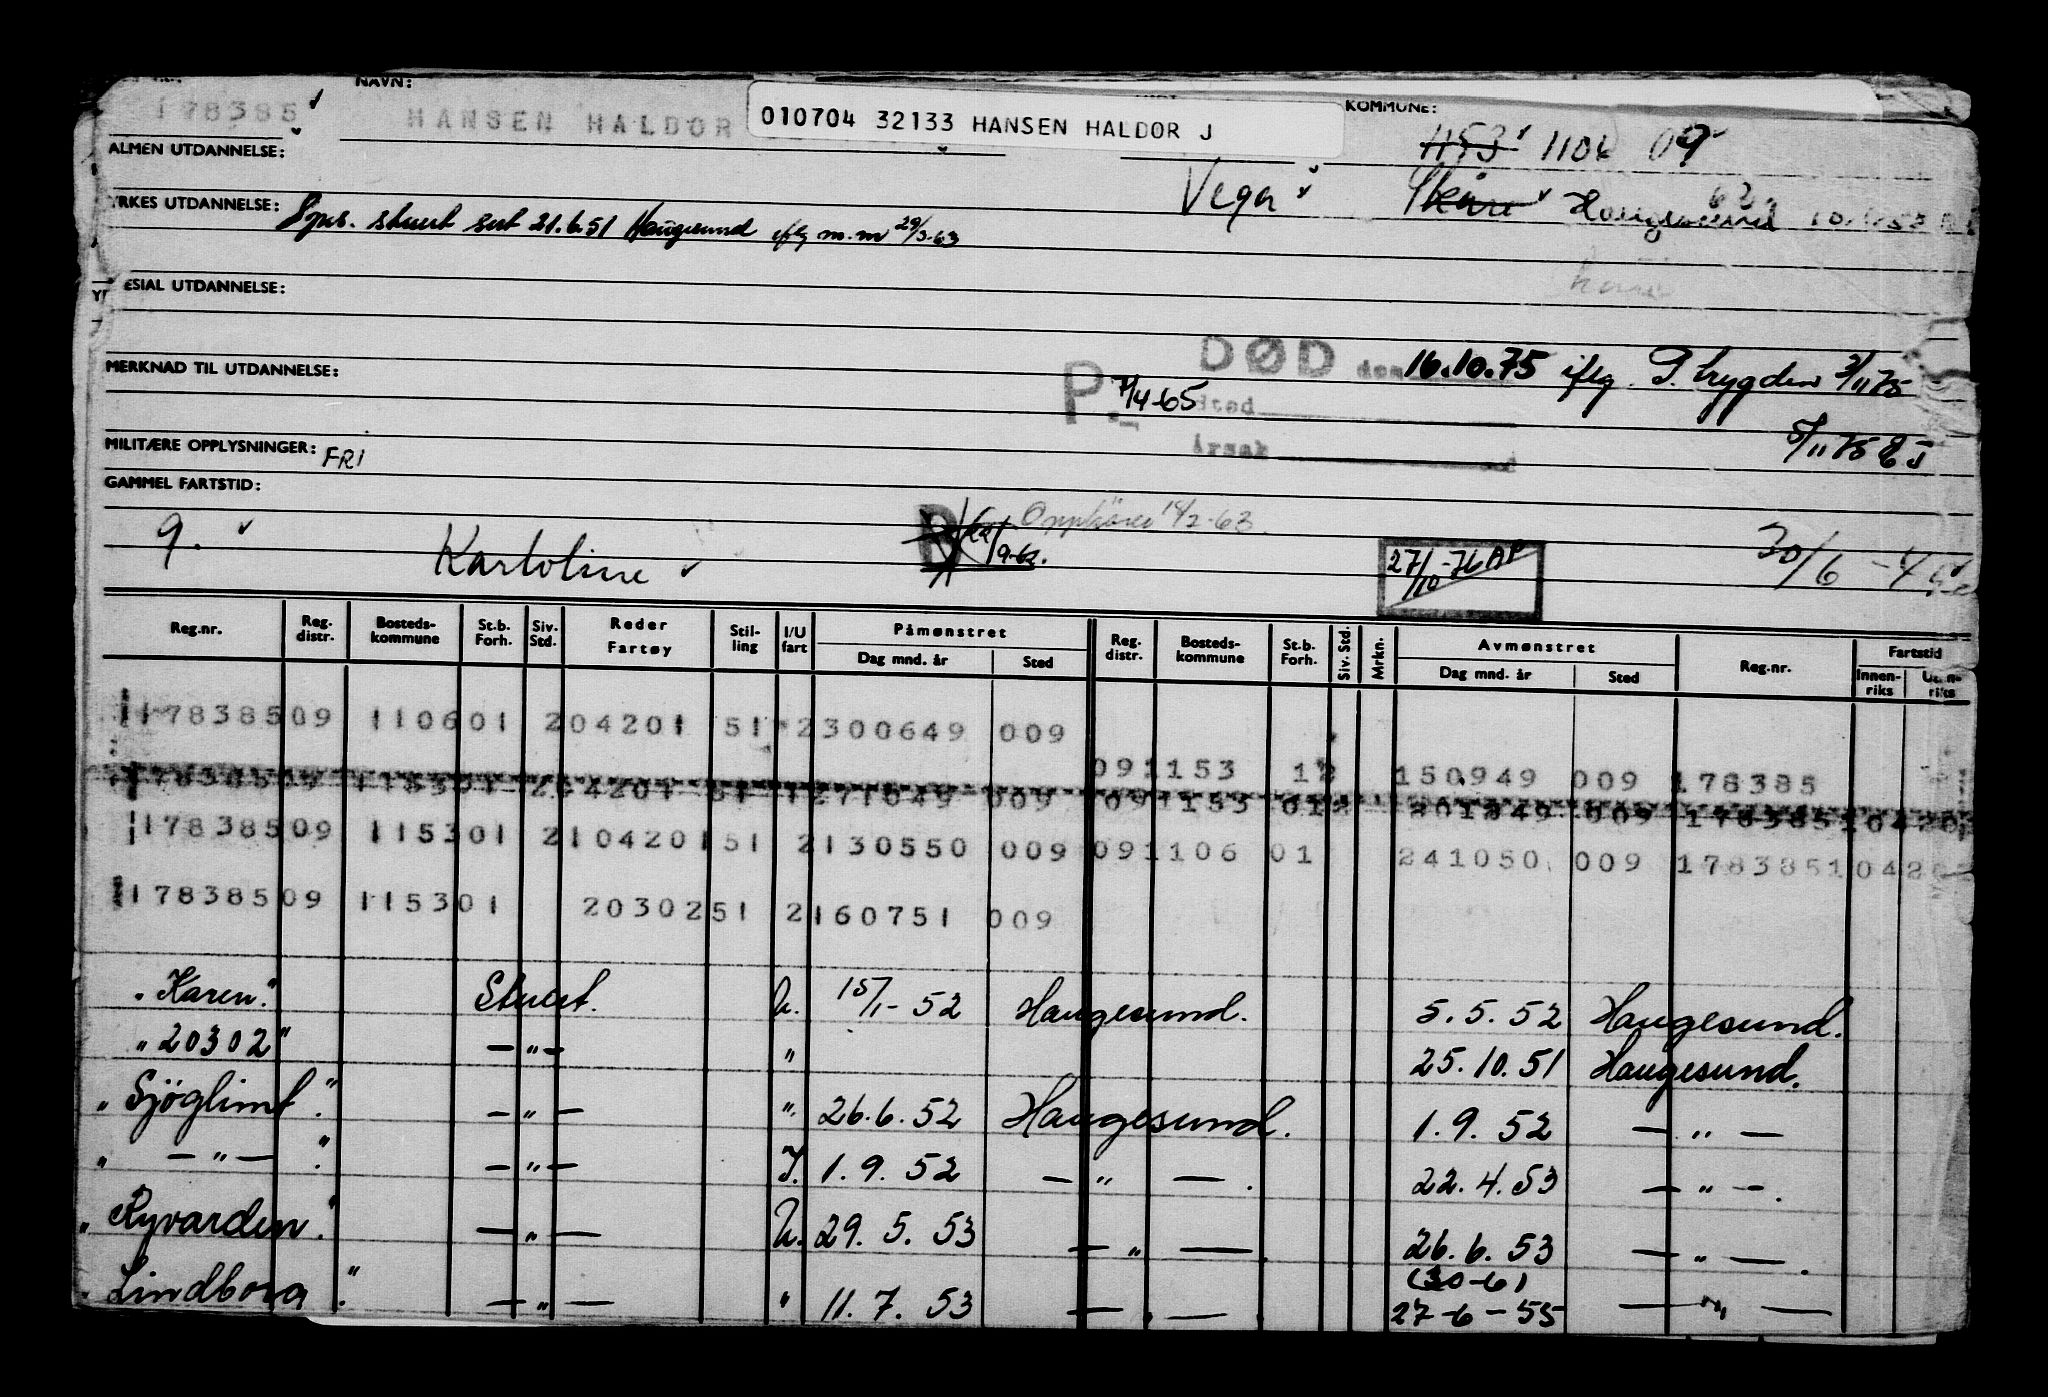 NAVN: KOMMUNE:
178385 HANSEN HALDOR 010704 32133 HANSEN HALDOR J
1153 1106 09
ALMEN UTDANNELSE:
Vega Skåre Haugesund
YRKES UTDANNELSE: stuert sert 21.6.51 Haugesund iflg m.m 29/3-63
ESIAL UTDANNELSE:
MERKNAD TIL UTDANNELSE:
P. 7/4-65
DØD den 16.10.75 iflg. P. trygden 3/11 75
sted
årsak
5/11 75
MILITÆRE OPPLYSNINGER: FRI
GAMMEL FARTSTID:
9. Karloline Opphører 14/2-63 27/10-76 30/6
Reg.nr. Reg. distr. Bosteds-kommune St.b. Forh. Siv. Std. Reder Fartøy Stil-ling I/U fart Påmønstret Dag mnd. år Sted Reg. distr. Bosteds-kommune St.b. Forh. Siv. Std. Mrkn. Avmønstret Dag mnd. år Sted Reg.nr. Fartstid Innen-riks
178385 09 1106 01 2 04201 51 2 300649 009
09 1153 12 150949 009 178385
009 09 1153 012 009 178385
178385 09 1153 01 2 104201 51 2 130550 009 09 1106 01 241050 009 178385 1042
178385 09 1153 01 20302 51 2 160751 009
"Karen". Stuert. U. 15/1-52 Haugesund. 5.5.52 Haugesund.
"20302" — " — " 25.10.51 Haugesund.
"Sjöglimt". — " — ". 26.6.52 Haugesund. 1.9.52 — " —
" — " — ". — " — I. 1.9.52 — " — . 22.4.53 — " — .
"Ryvarden". — " — U. 29.5.53 — " — . 26.6.53 — " — .
(30-6)
"Lindborg". — " — " 11.7.53 — " — 27-6-55 — " —